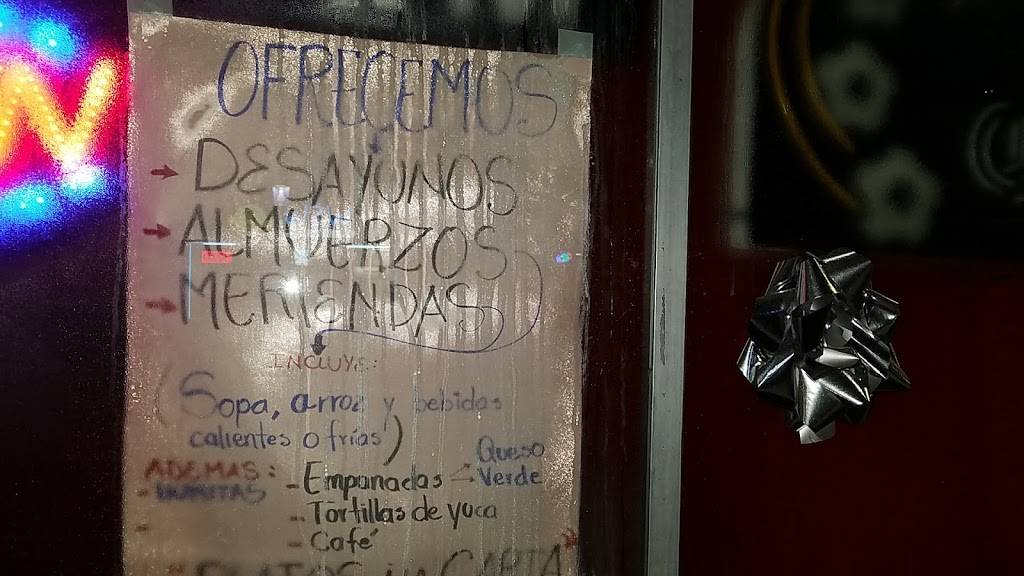 OFRECEMOS
DESAYUNOS
ALMUERZOS
MERIENDAS
INCLUYE:
(Sopa, arroz y bebidas
calientes o frías)
ADEMAS: - Empanadas Queso
Verde
- HUMITAS
- Tortillas de yuca
- Café
PLATOS CARTA